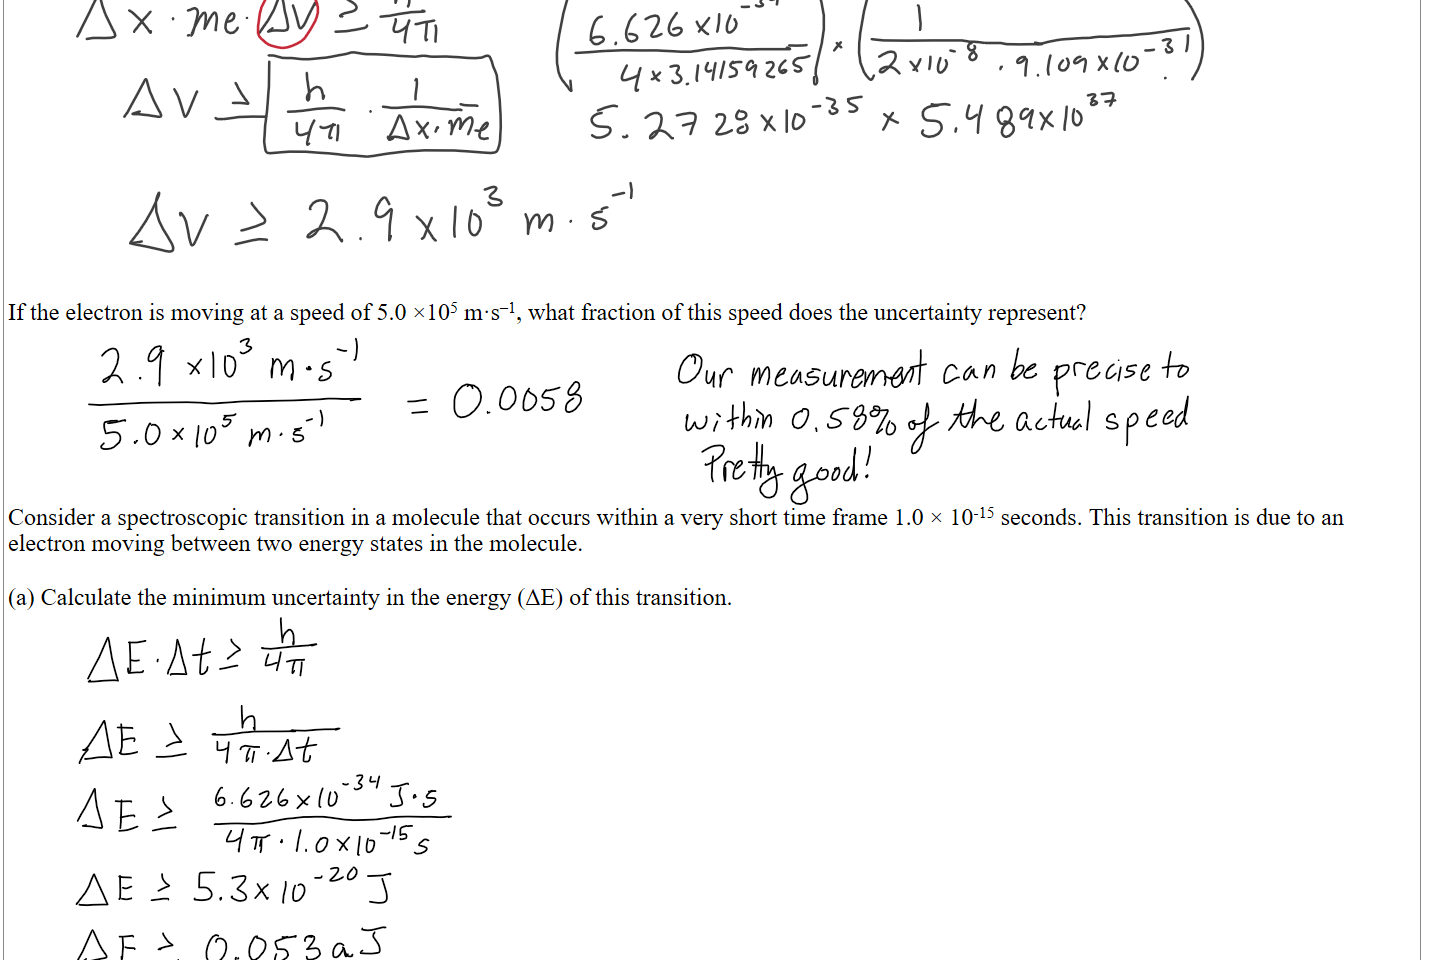 Δx · me · ΔV ≥ h/4π
(6.626 x10^-34 / 4 x 3.14159265) x (1 / 2 x10^-8 · 9.109 x10^-31)
ΔV ≥ h/4π · 1/Δx·me
5.2728 x10^-35 x 5.489 x10^37
ΔV ≥ 2.9 x10^3 m·s^-1
If the electron is moving at a speed of 5.0 ×10⁵ m·s⁻¹, what fraction of this speed does the uncertainty represent?
2.9 x10^3 m·s^-1 / 5.0 x 10^5 m·s^-1 = 0.0058
Our measurement can be precise to
within 0.58% of the actual speed
Pretty good!
Consider a spectroscopic transition in a molecule that occurs within a very short time frame 1.0 × 10⁻¹⁵ seconds. This transition is due to an
electron moving between two energy states in the molecule.
(a) Calculate the minimum uncertainty in the energy (ΔE) of this transition.
ΔE·Δt ≥ h/4π
ΔE ≥ h/4π·Δt
ΔE ≥ 6.626 x10^-34 J·s / 4π · 1.0 x10^-15 s
ΔE ≥ 5.3 x 10^-20 J
ΔE ≥ 0.053 aJ